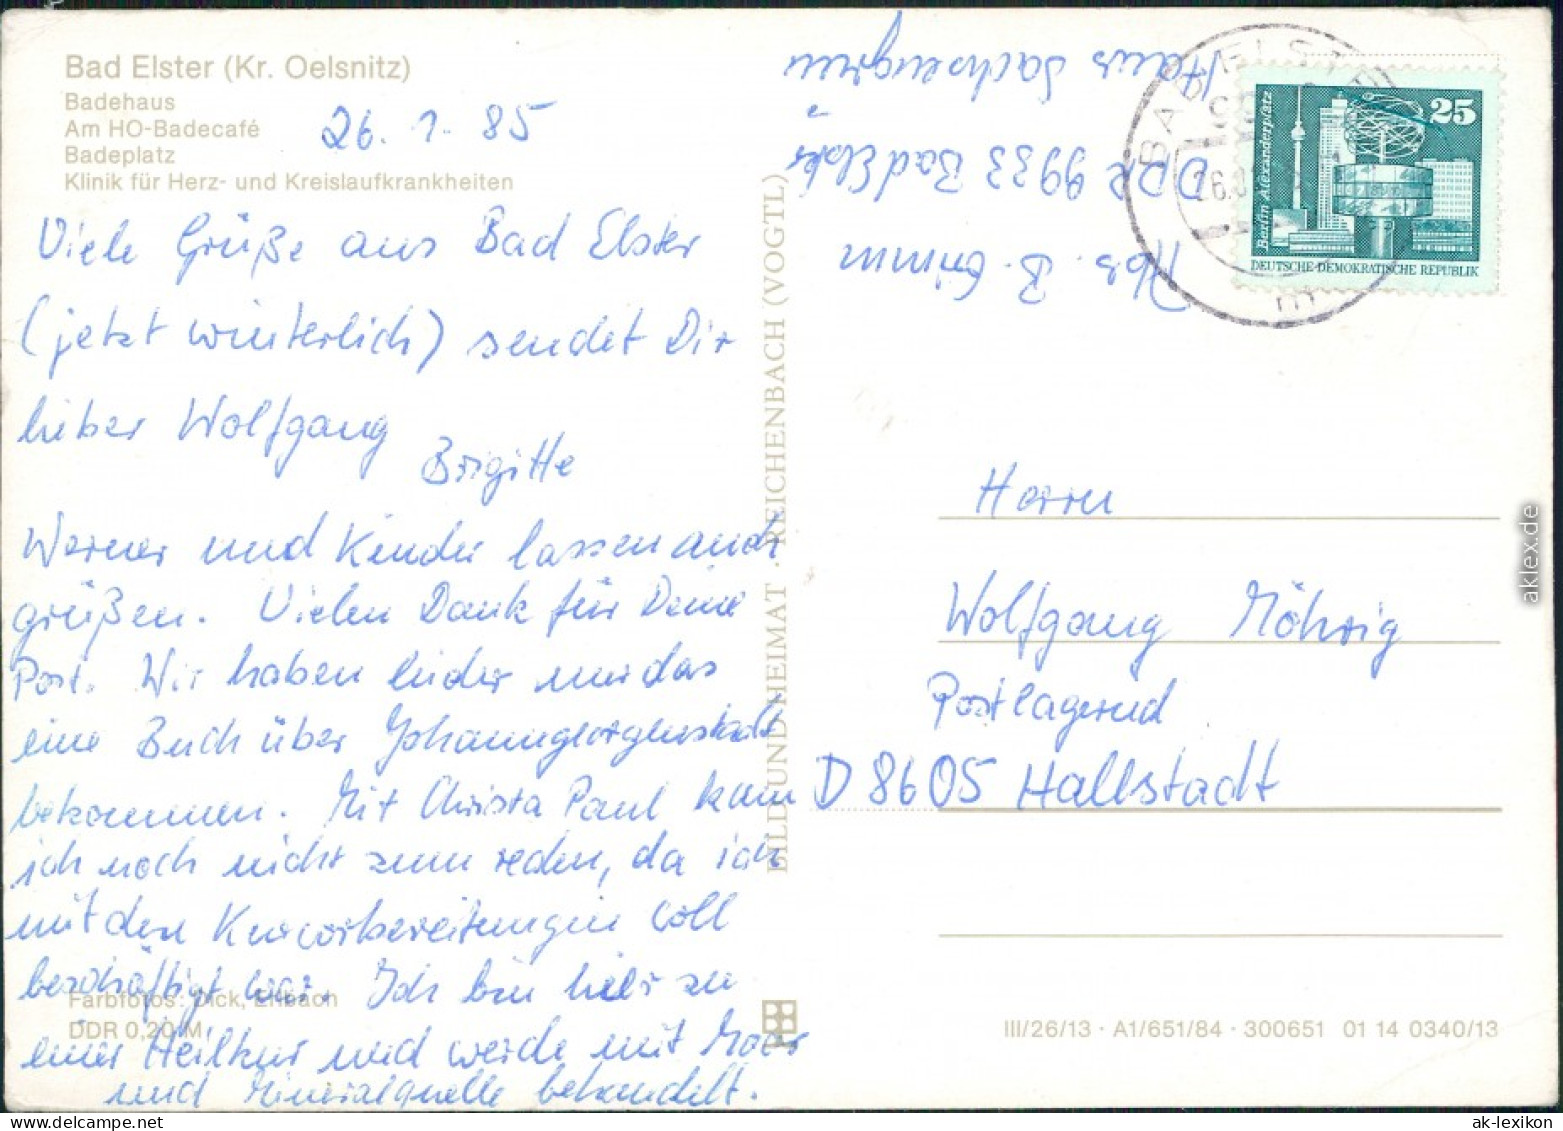 Bad Elster (Kr. Oelsnitz)
Badehaus
Am HO-Badecafé
Badeplatz
Klinik für Herz- und Kreislaufkrankheiten
26. 1. 85
Viele Grüße aus Bad Elster
(jetzt winterlich) sendet Dir
lieber Wolfgang
Brigitte
Werner und Kinder lassen auch
grüßen. Vielen Dank für Deine
Post. Wir haben leider nur das
eine Buch über Johanngeorgenstadt
bekommen. Mit Christa Paul kam
ich noch nicht zum reden, da ich
mit den Kurvorbereitungen voll
beschäftigt war. Ich bin hier zu
einer Heilkur und werde mit Moor
und Mineralquelle behandelt.
Farbfotos: Dick, Erlbach
DDR 0,20 M
BILD UND HEIMAT · REICHENBACH (VOGTL)
Abs. B. Grimm
DDR 9933 Bad Elster
Haus Sachsengrün
BAD ELSTER
m
25
Berlin Alexanderplatz
DEUTSCHE DEMOKRATISCHE REPUBLIK
Herrn
Wolfgang Möhrig
Postlagernd
D 8605 Hallstadt
III/26/13 · A1/651/84 · 300651 01 14 0340/13
aklex.de
ak-lexikon